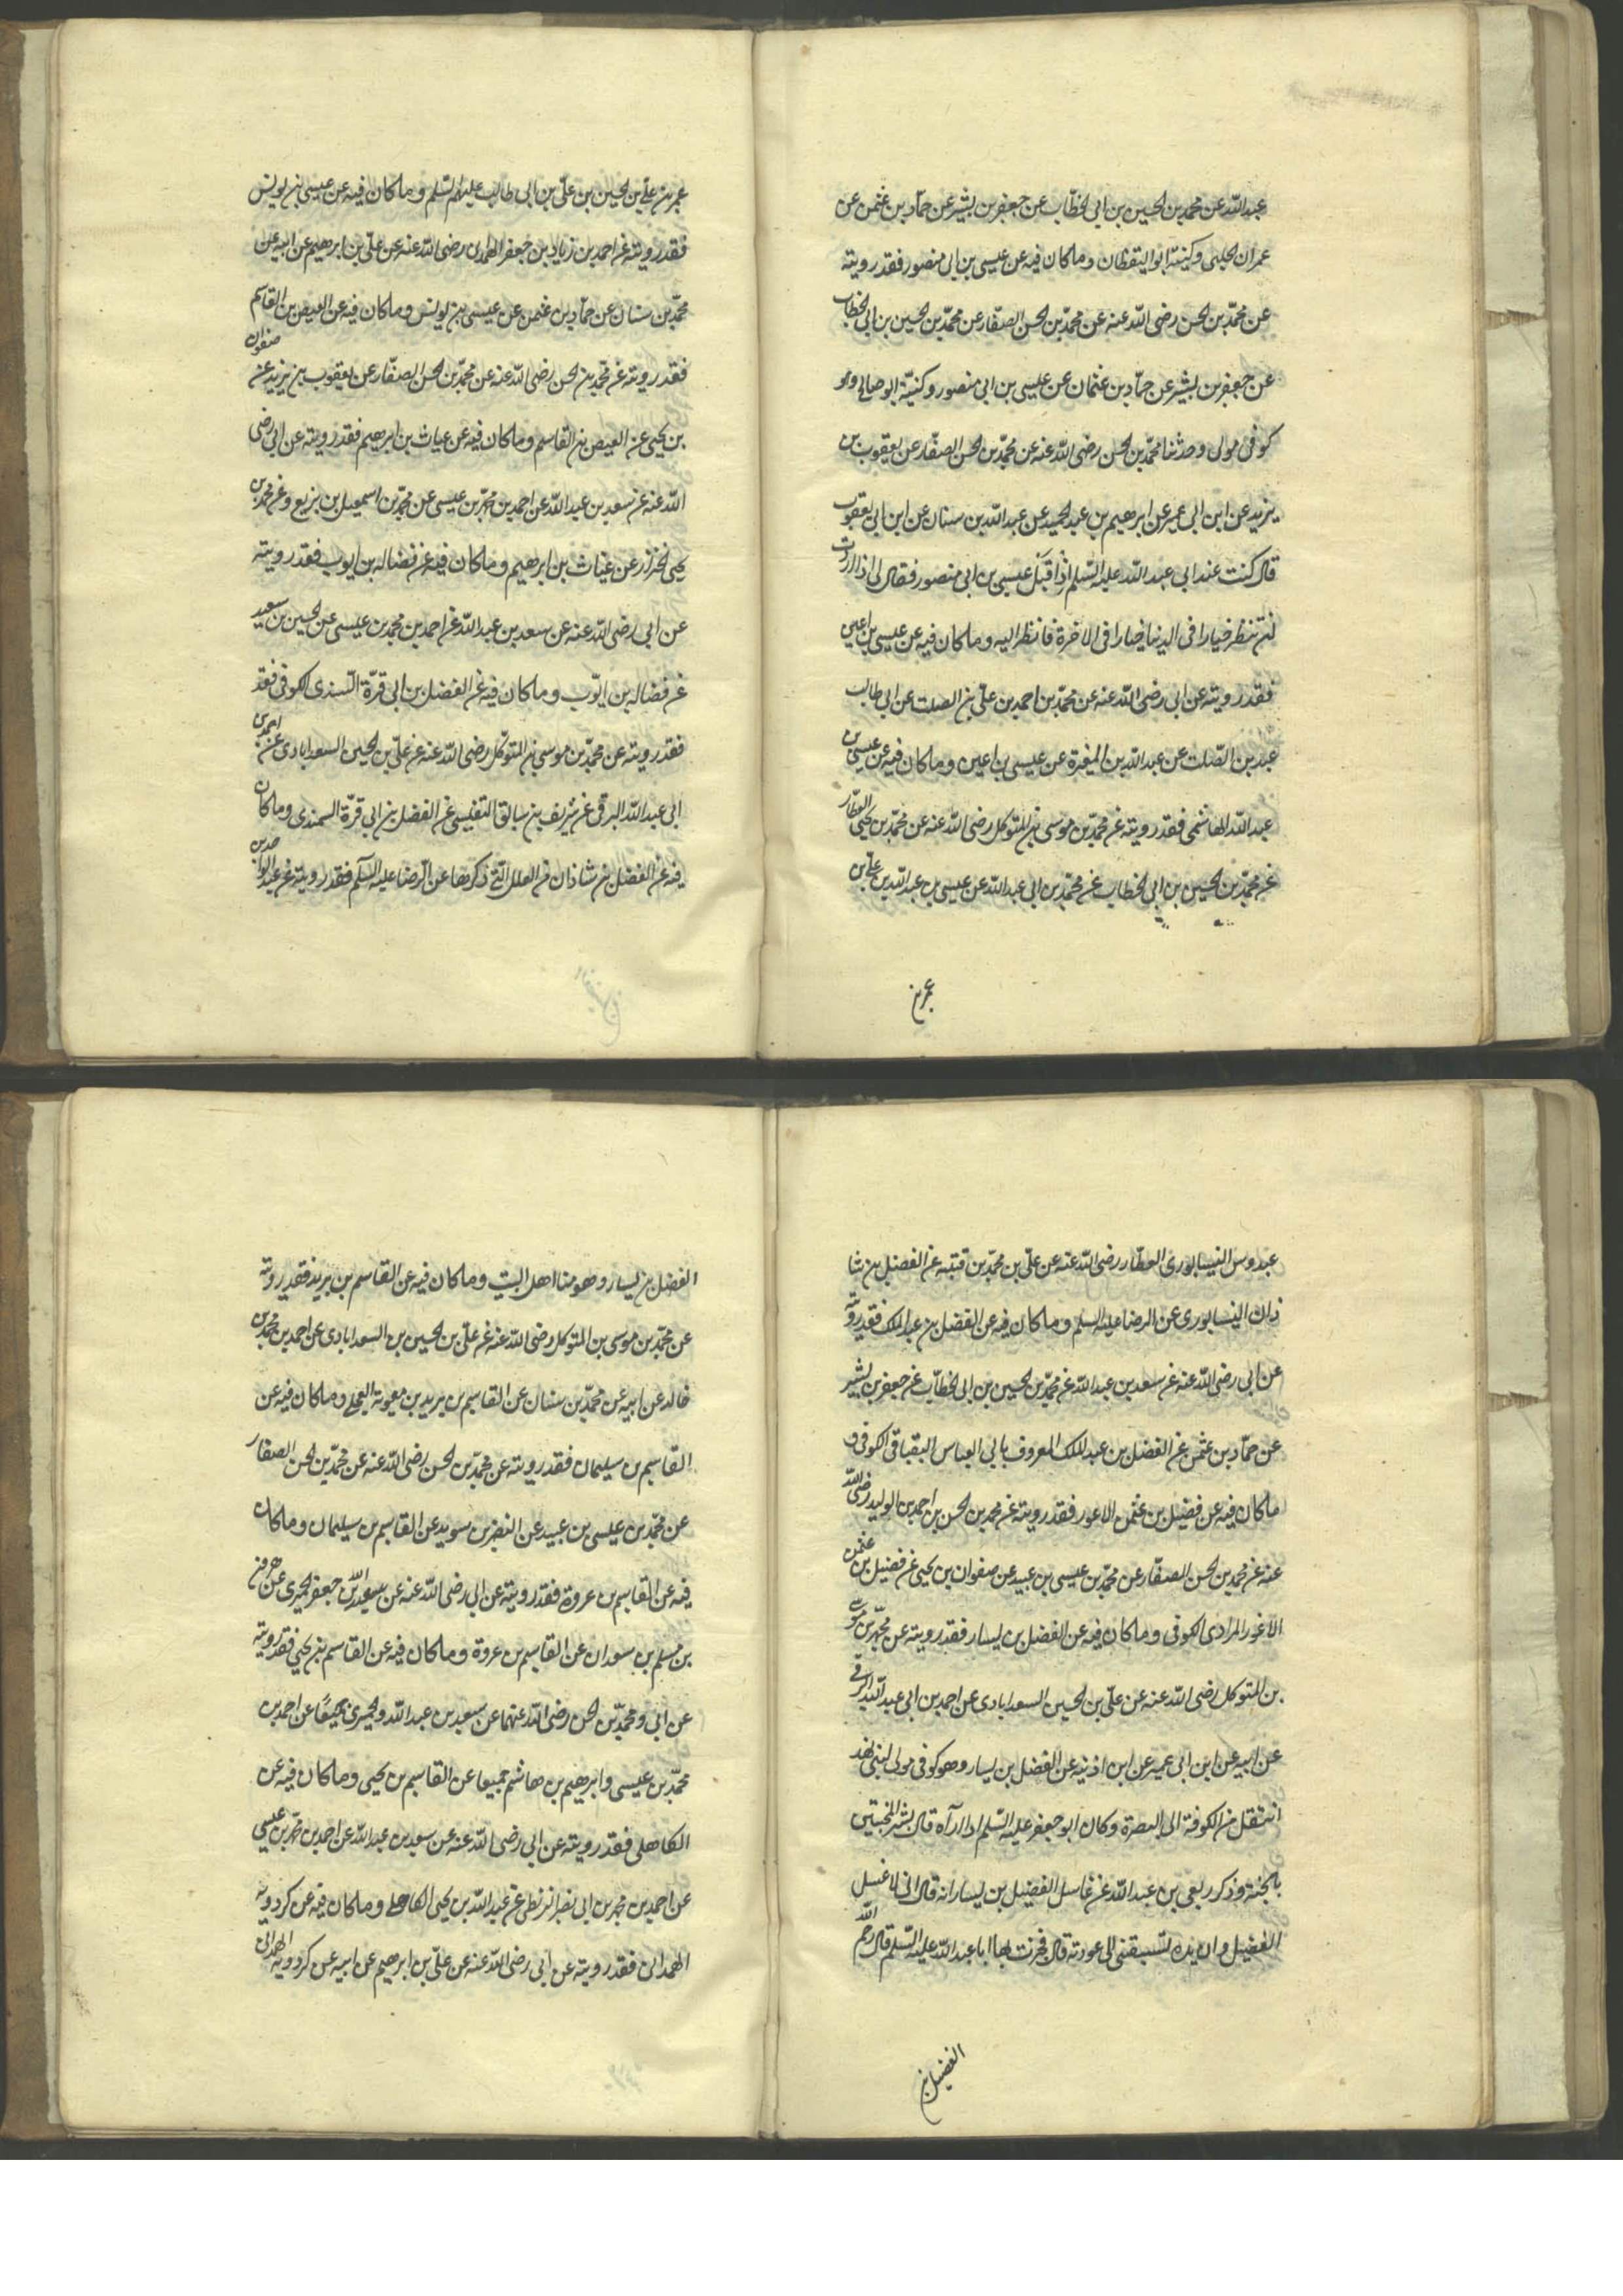 عبدالله عن محمد بن الحسين بن ابي الخطاب عن جعفر بن بشير عن حماد بن عثمن عن
عمران الحلبى وكنيته ابو اليقظان وماكان فيه عن عيسى بن ابى منصور فقد رويته
عن محمد بن الحسن رضى الله عنه عن محمد بن الحسن الصفار عن محمد بن الحسين بن ابى الخطاب
عن جعفر بن بشير عن حماد بن عثمان عن عيسى بن ابى منصور وكنيته ابو صالح وهو
كوفى مولى وحدثنا محمد بن الحسن رضى الله عنه عن محمد بن الحسن الصفار عن يعقوب بن
يزيد عن ابن ابى عمير عن ابرهيم بن عبد الحميد عن عبدالله بن سنان عن ابن ابى يعقوب
قال كنت عند ابى عبد الله عليه السلم اذا قبل عيسى بن ابى منصور فقال لى اذا اردت
ان تنظر خيارا فى الدنيا خيارا فى الاخرة فانظر اليه وماكان فيه عن عيسى بن اعين
فقد رويته عن ابى رضى الله عنه عن محمد بن احمد بن على بن الصلت عن ابى طالب
عبد بن الصلت عن عبدالله بن المغيرة عن عيسى بن اعين وماكان فيه عن عيسى بن
عبد الله الهاشمى فقد رويته عن محمد بن موسى بن المتوكل رضى الله عنه عن محمد بن يحيى العطار
عن محمد بن الحسين بن ابى الخطاب عن محمد بن ابى عبدالله عن عيسى بن عبدالله بن على بن
عمر بن
عمر بن على بن الحسين بن على بن ابى طالب عليهم السلم وماكان فيه عن عيسى بن يونس
فقد رويته عن احمد بن زياد بن جعفر الهمدانى رضى الله عنه عن على بن ابرهيم عن ابيه عن
محمد بن سنان عن حماد بن عثمن عن عيسى بن يونس وماكان فيه عن العيص بن القاسم
فقد رويته عن محمد بن الحسن رضى الله عنه عن محمد بن الحسن الصفار عن يعقوب بن يزيد عن صفوان
بن يحيى عن العيص بن القاسم وماكان فيه عن غياث بن ابرهيم فقد رويته عن ابى رضى
الله عنه عن سعد بن عبد الله عن احمد بن محمد بن عيسى عن محمد بن اسمعيل بن بزيع وعن محمد بن
يحيى الخزاز عن غياث بن ابرهيم وماكان فيه عن فضاله بن ايوب فقد رويته
عن ابى رضى الله عنه عن سعد بن عبدالله عن احمد بن محمد بن عيسى عن الحسين بن سعيد
عن فضاله بن ايوب وماكان فيه عن الفضل بن ابى قرة السندى الكوفى فقد
فقد رويته عن محمد بن موسى بن المتوكل رضى الله عنه عن على بن الحسين السعدابادى عن احمد بن
ابى عبدالله البرقى عن شريف بن سابق التفليسى عن الفضل بن ابى قرة السمندى وماكان
فيه عن الفضل بن شاذان من العلل التى ذكرها عن الرضا عليه السلم فقد رويته عن عبد الواحد بن
عبدوس النيسابورى العطار رضى الله عنه عن على بن محمد بن قتيبه عن الفضل بن شا
ذان النيسابورى عن الرضا عليه السلم وماكان فيه عن الفضل بن عبد الملك فقد رويته
عن ابى رضى الله عنه عن سعد بن عبد الله عن محمد بن الحسين بن ابى الخطاب عن جعفر بن بشير
عن حماد بن عثمن عن الفضل بن عبد الملك المعروف بابى العباس البقباقى الكوفى و
ماكان فيه عن فضيل بن عثمن الاعور فقد رويته عن محمد بن الحسن بن احمد بن الوليد رضى الله
عنه عن محمد بن الحسن الصفار عن محمد بن عيسى بن عبيد عن صفوان بن يحيى عن فضيل بن عثمن
الاعور المرادى الكوفى وماكان فيه عن الفضل بن يسار فقد رويته عن محمد بن موسى
بن المتوكل رضى الله عنه عن على بن الحسين السعدابادى عن احمد بن ابى عبدالله البرقى
عن ابيه عن ابن ابى عمير عن ابن اذنيه عن الفضل بن يسار وهو كوفى مولى لبنى نهد
انتقل من الكوفة الى البصرة وكان ابو جعفر عليه السلم اذا رآه قال بشر المخبتين
بالجنة وذكر ربعى بن عبدالله عن غاسل الفضيل بن يسار انه قال انى لاغسل
الفضيل وان يده لتسبقنى الى عورته قال فخبرت بها ابا عبد الله عليه السلم قال رحم الله
الفضيل بن
الفضل بن يسار وهو منا اهل البيت وماكان فيه عن القاسم بن بريد فقد رويته
عن محمد بن موسى بن المتوكل رضى الله عنه عن على بن الحسين بن السعدابادى عن احمد بن محمد بن
خالد عن ابيه عن محمد بن سنان عن القاسم بن بريد بن معوية العجلى وماكان فيه عن
القاسم بن سليمان فقد رويته عن محمد بن الحسن رضى الله عنه عن محمد بن الحسن الصفار
عن محمد بن عيسى بن عبيد عن النضر بن سويد عن القاسم بن سليمان وماكان
فيه عن القاسم بن عروة فقد رويته عن ابى رضى الله عنه عن عبدالله بن جعفر الحميرى عن هرون
بن مسلم بن سعدان عن القاسم بن عروة وماكان فيه عن القاسم بن يحيى فقد رويته
عن ابى ومحمد بن الحسن رضى الله عنهما عن سعد بن عبد الله والحميرى جميعا عن احمد بن
محمد بن عيسى وابرهيم بن هاشم جميعا عن القاسم بن يحيى وماكان فيه عن
الكاهلى فقد رويته عن ابى رضى الله عنه عن سعد بن عبدالله عن احمد بن محمد بن عيسى
عن احمد بن محمد بن ابى نصر البزنطى عن عبد الله بن يحيى الكاهلى وماكان فيه عن كردويه
الهمدانى فقد رويته عن ابى رضى الله عنه عن على بن ابرهيم عن ابيه عن كردويه الهمدانى